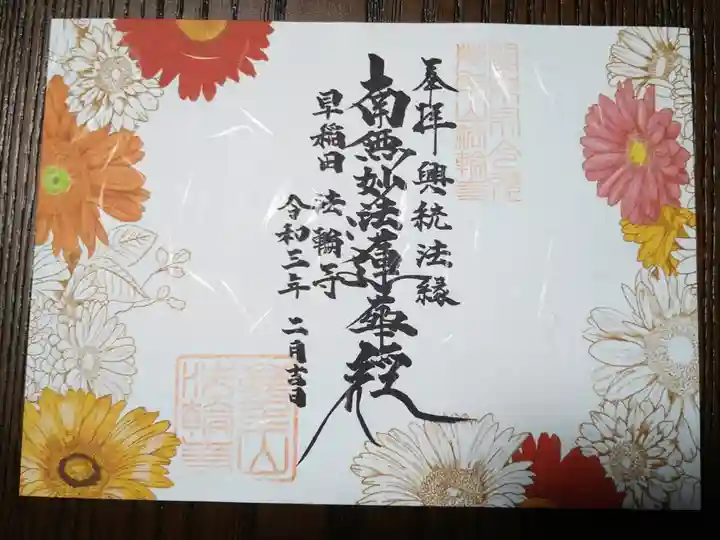 奉拝 興統法縁
南無妙法蓮華経
早稲田 法輪寺
令和三年 二月吉日
法輪寺